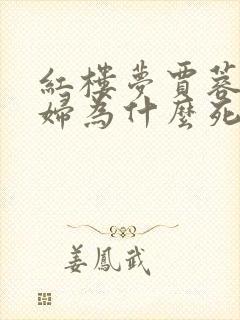 紅樓夢賈蓉
婦為什麼死
姜鳳武